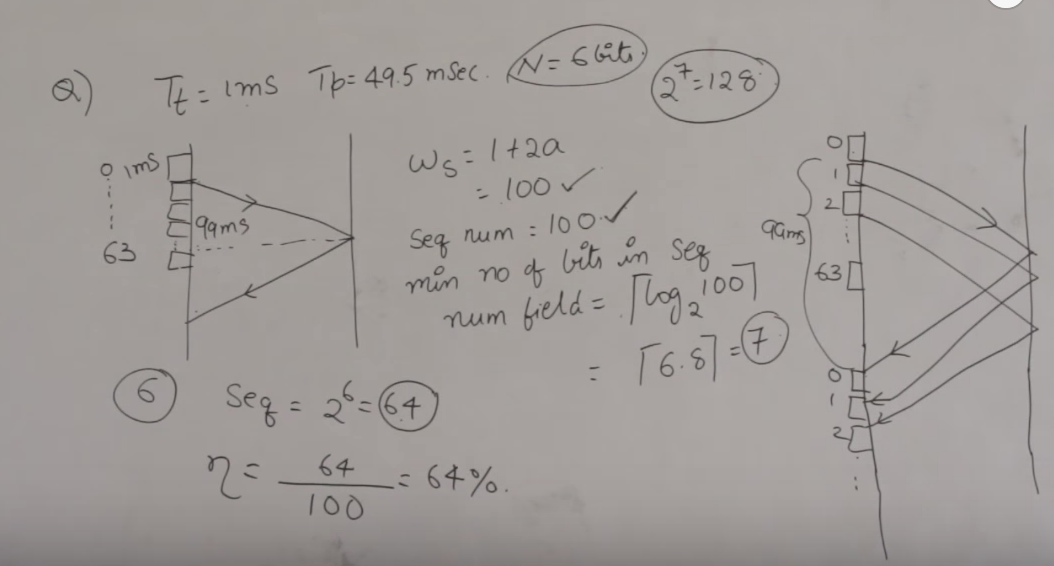 Q) Tt = 1ms Tp = 49.5 msec. N = 6 bits 2^7 = 128
0 1ms
99ms
63
Ws = 1+2a
= 100 ✓
Seq num = 100 ✓
min no of bits in seq
num field = ⌈log₂100⌉
= ⌈6.8⌉ = 7
6 Seq = 2^6 = 64
η = 64/100 = 64%.
0
1
2
99ms
63
0
1
2